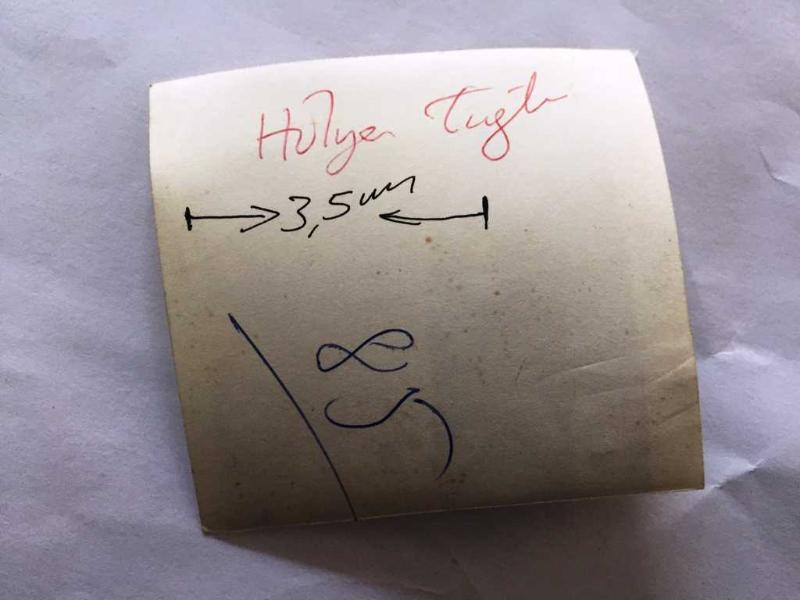 Hülya Tuğlu
3,5 cm
85